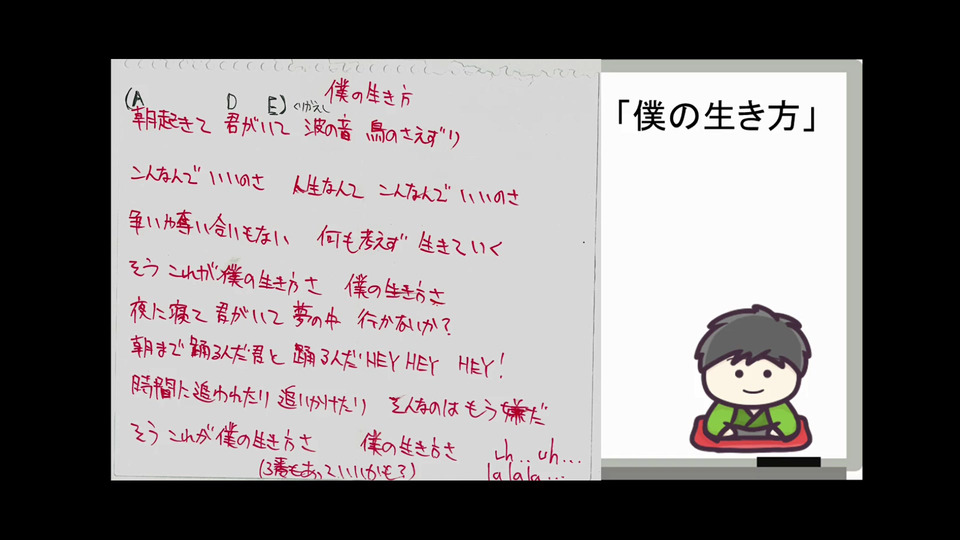 僕の生き方
(A D E) くりかえし
朝起きて 君がいて 波の音 鳥のさえずり
こんなんで いいのさ 人生なんて こんなんで いいのさ
争いや奪い合いもない 何も考えず 生きていく
そう これが 僕の生き方さ 僕の生き方さ
夜に寝て 君がいて 夢の中 行かないか?
朝まで 踊るんだ君と 踊るんだ HEY HEY HEY!
時間に追われたり 追いかけたり そんなのは もう 嫌だ
そう これが 僕の生き方さ 僕の生き方さ uh..uh...
(3番もあっていいかも?) lalala...
「僕の生き方」